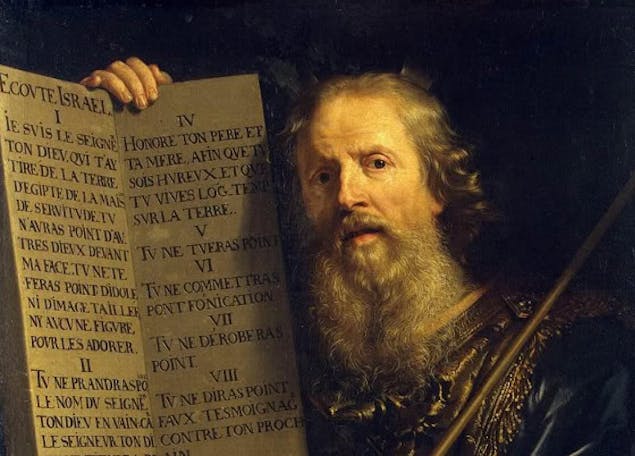 ECOVTE ISRAEL.
I
IE SVIS LE SEIGNE
TON DIEV, QVI T'AY
TIRE DE LA TERRE
D'EGIPTE DE LA MAIS
DE SERVITVDE. TV
N'AVRAS POINT D'AV
TRES DIEVX DEVANT
MA FACE. TV NE TE
FERAS POINT D'IDOLE
NI D'IMAGE TAILLEE
NY AVCVNE FIGVRE
POVR LES ADORER.
II
TV NE PRANDRAS PO
LE NOM DV SEIGNE
TON DIEV EN VAIN. CA
LE SEIGNEVR TON DI
IV
HONORE TON PERE ET
TA MERE, AFIN QVE TV
SOIS HVREVX, ET QVE
TV VIVES LOG. TEMP
SVR LA TERRE.
V
TV NE TVERAS POINT
VI
TV NE COMMETTRAS
PONT FONICATION
VII
TV NE DEROBERAS
POINT.
VIII
TV NE DIRAS POINT
FAVX TESMOIGNAG
CONTRE TON PROCH